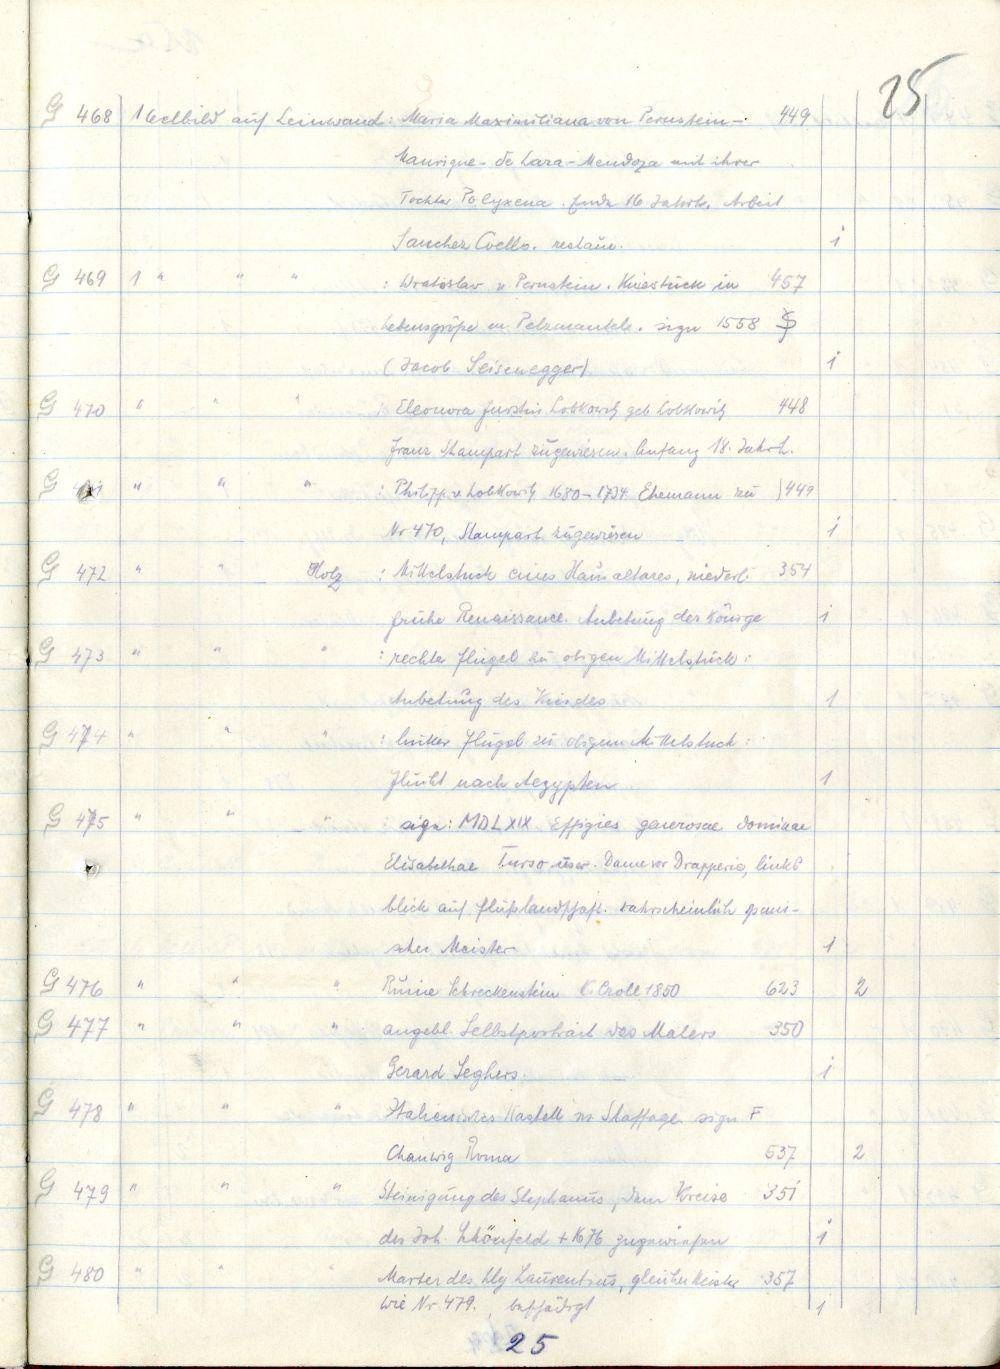 25
G 468 1 Oelbild auf Leinwand: Maria Maximiliana von Pernstein- 449
Manrique-de Lara-Mendoza mit ihrer
Tochter Polyxena. Ende 16 Jahrh. Arbeit
Sanchez Coello. restaur. 1
G 469 1 " " " : Wratislav v Pernstein. Kniestück in 457
Lebensgröße m. Pelzmantel. sign 1558
(Jacob Seisenegger) 1
G 470 " " " : Eleonora Fürstin Lobkowitz geb Lobkowitz 448
Franz Stampart zugewiesen. Anfang 18. Jahrh.
G " " " : Philipp v Lobkowitz 1680-1734 Ehemann zu 449
Nr 470, Stampart zugewiesen 1
G 472 " " Holz : Mittelstück eines Hausaltares, niederl. 354
frühe Renaissance. Anbetung der Könige 1
G 473 " " " : rechter Flügel zu obigen Mittelstück:
Anbetung des Kindes 1
G 474 " " " : linker Flügel zu obigem Mittelstück:
Flucht nach Aegypten 1
G 475 " " " : sign: MDLXIX Effigies generosae dominae
Elisabethae Turso usw. Dame vor Drapperie, links
blick auf Flußlandschaft. wahrscheinlich spani-
scher Meister 1
G 476 " " " Ruine Schreckenstein K. Croll 1850 623 2
G 477 " " " angebl. Selbstportrait des Malers 350
Gerard Seghers. 1
G 478 " " " Italienisches Kastell m Staffage sign F
Roma 537 2
G 479 " " " Steinigung des Stephanus, dem Kreise 351
des Joh. Schönfeld + 1676 zugewiesen 1
G 480 " " " Marter des hlg Laurentius, gleicher Meister 357
wie Nr 479. beschädigt 1
25